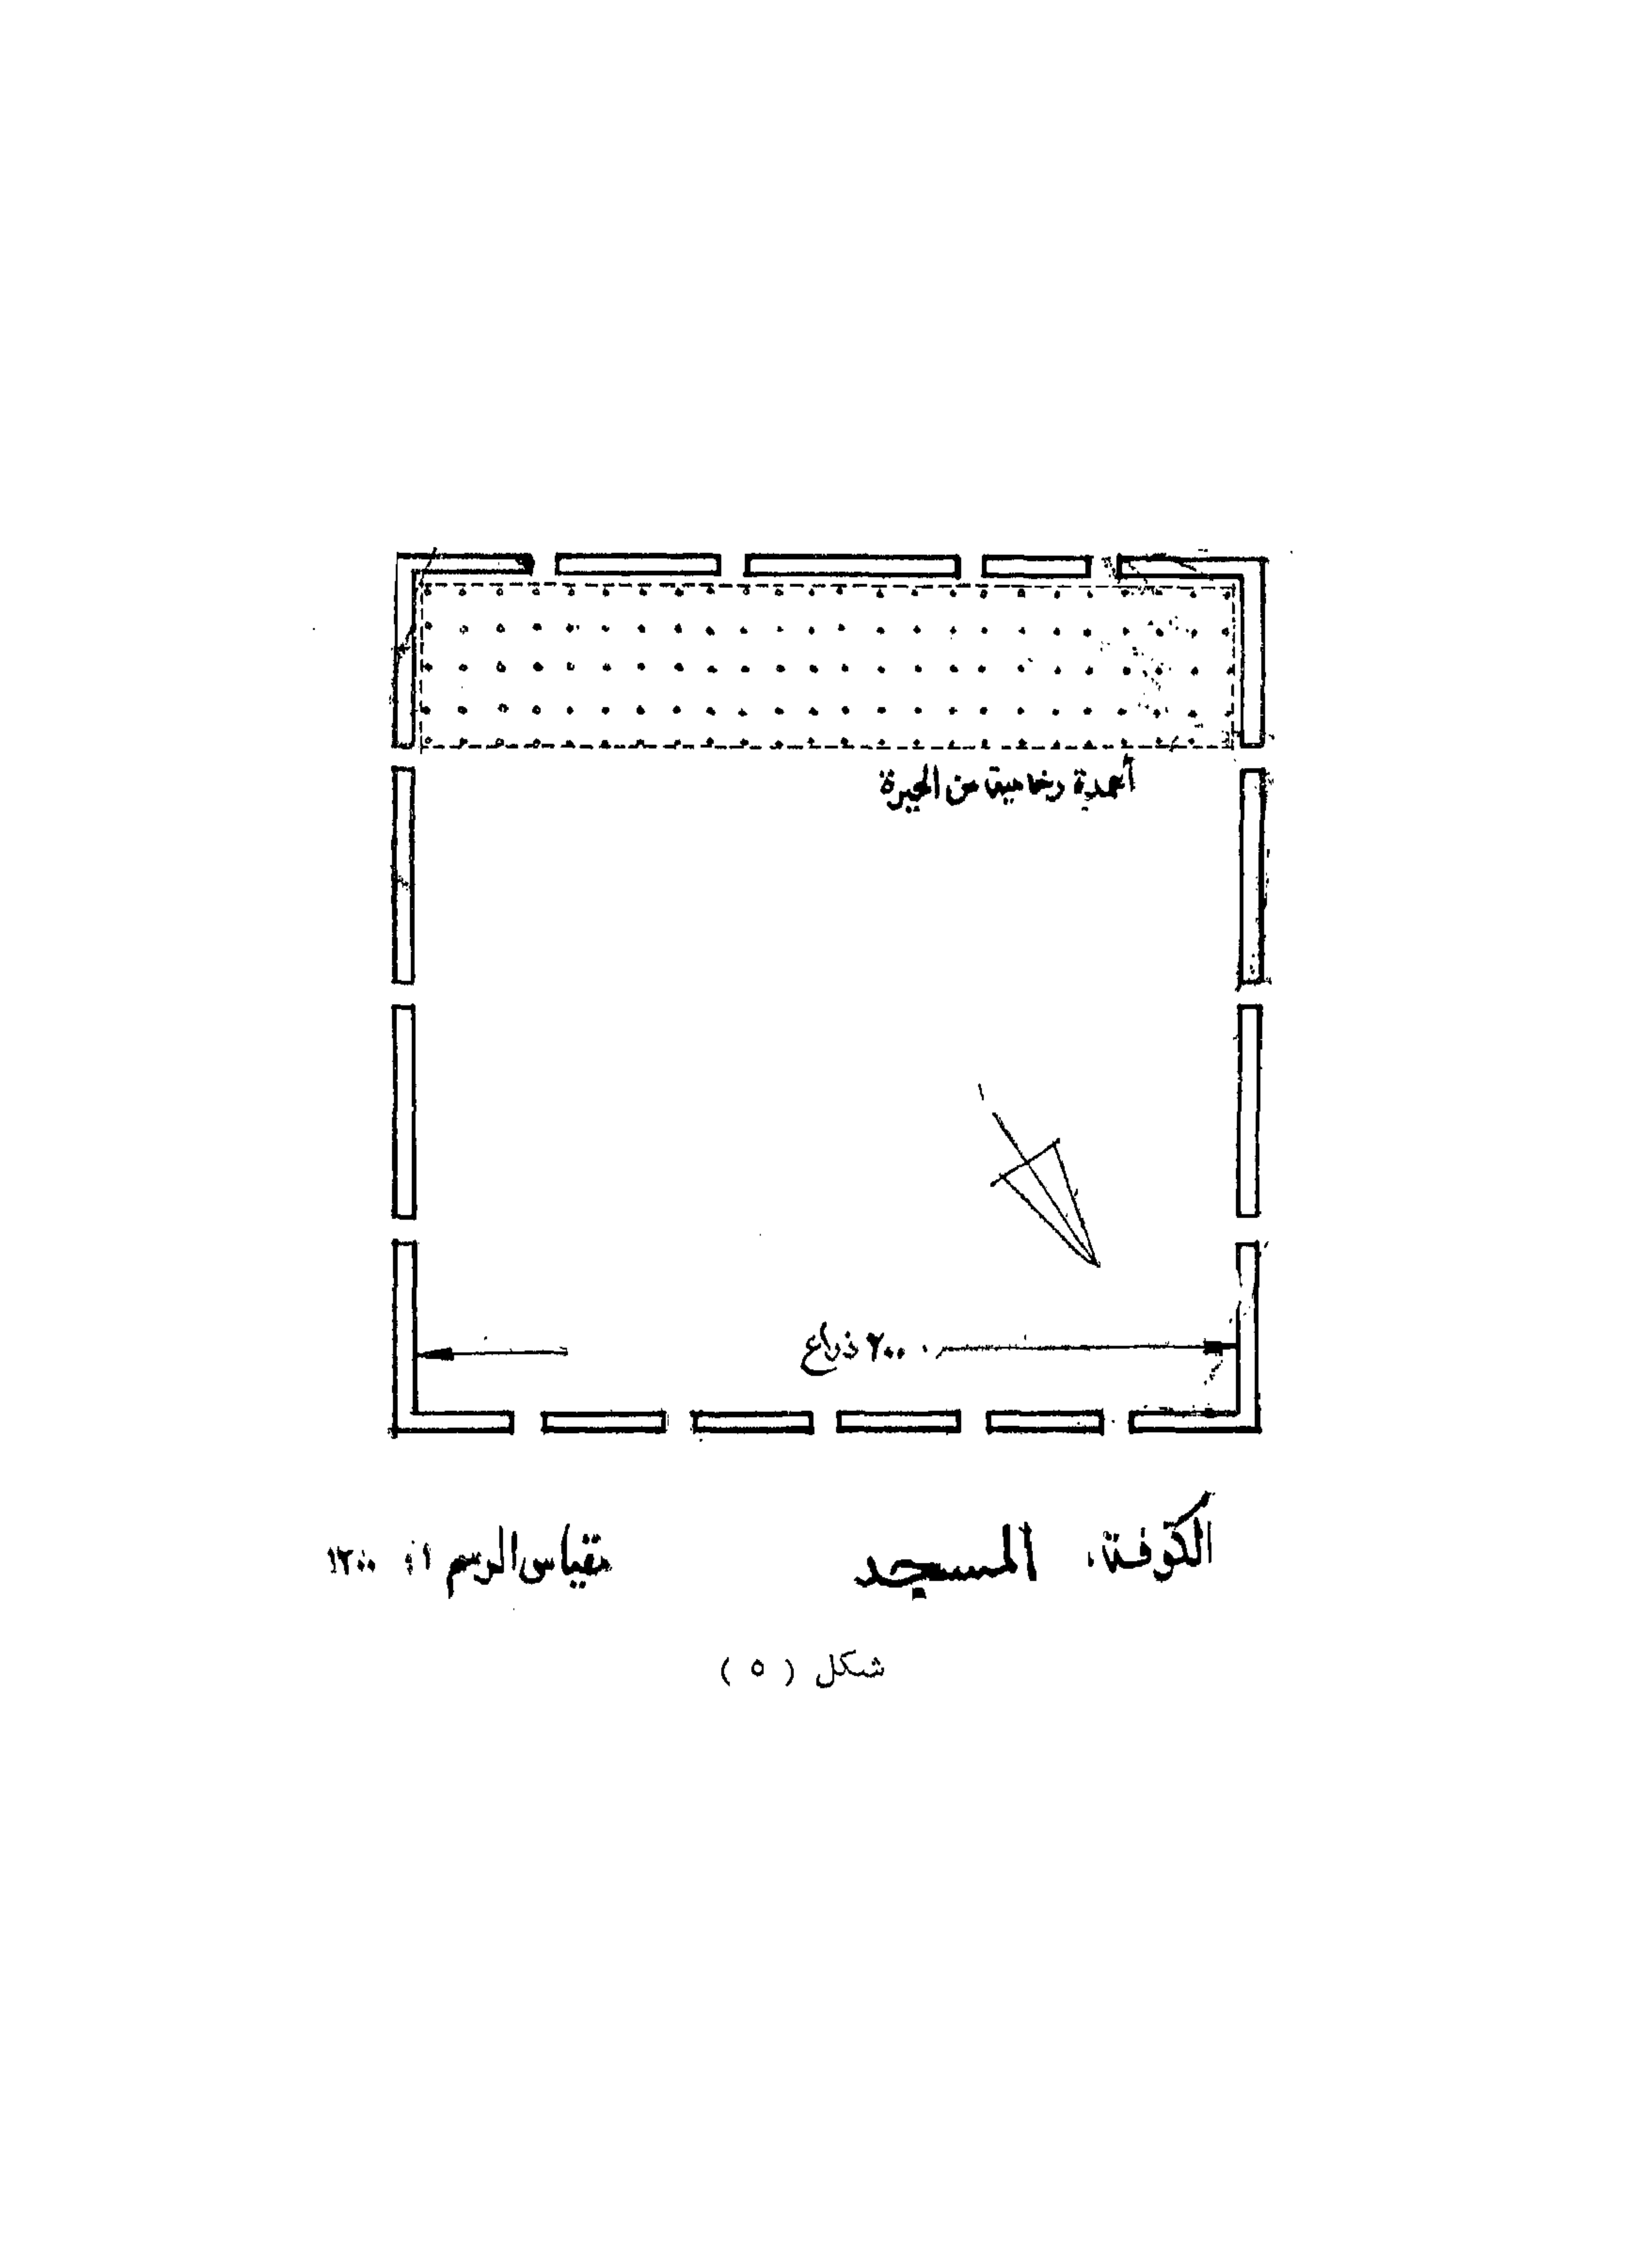 أعمدة رخامية من الحيرة
٢٠٠ ذراع
الكوفة، المسجد
مقياس الرسم ١: ١٢٠٠
شكل ( ٥ )